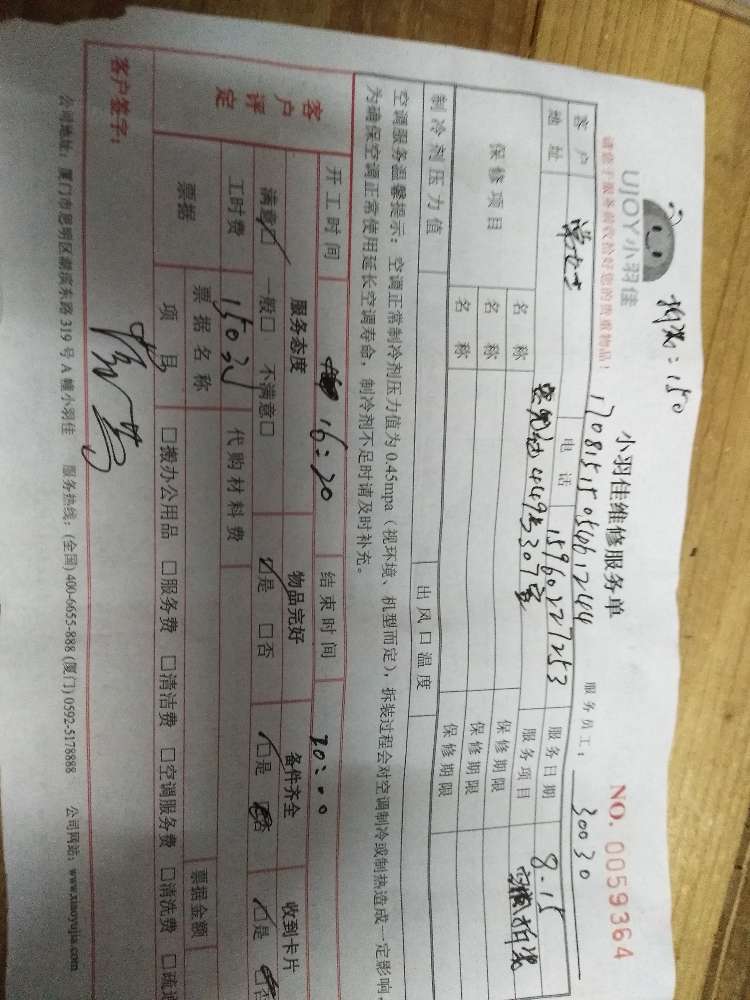 拆装:150
UJOY小羽佳
请留于服务前收拾好您的贵重物品!
小羽佳维修服务单
NO. 0059364
17081515056612444
服务员工: 30030
客户 电话 15960227253 服务日期 8.15
地址 449号307室 服务项目 空调拆装
保修项目 名称 保修期限
名称 保修期限
名称 保修期限
制冷剂压力值 出风口温度
空调服务温馨提示:空调正常制冷剂压力值为0.45mpa(视环境、机型而定),拆装过程会对空调制冷或制热造成一定影响,
为确保空调正常使用延长空调寿命,制冷剂不足时请及时补充。
开工时间 16:20 结束时间 20:00
客户评定
服务态度 物品完好 备件齐全 收到卡片
满意□ 一般□ 不满意□ □是 □否 □是 □否 □是 □否
工时费 150元 代购材料费
票据 票据名称 票据金额
项目 □搬办公用品 □服务费 □清洁费 □空调服务费 □清洗费 □疏通
客户签字:
公司地址:厦门市思明区湖滨东路319号A幢小羽佳 服务热线:(全国)400-6655-888 (厦门)0592-5178888 公司网站:www.xiaoyujia.com